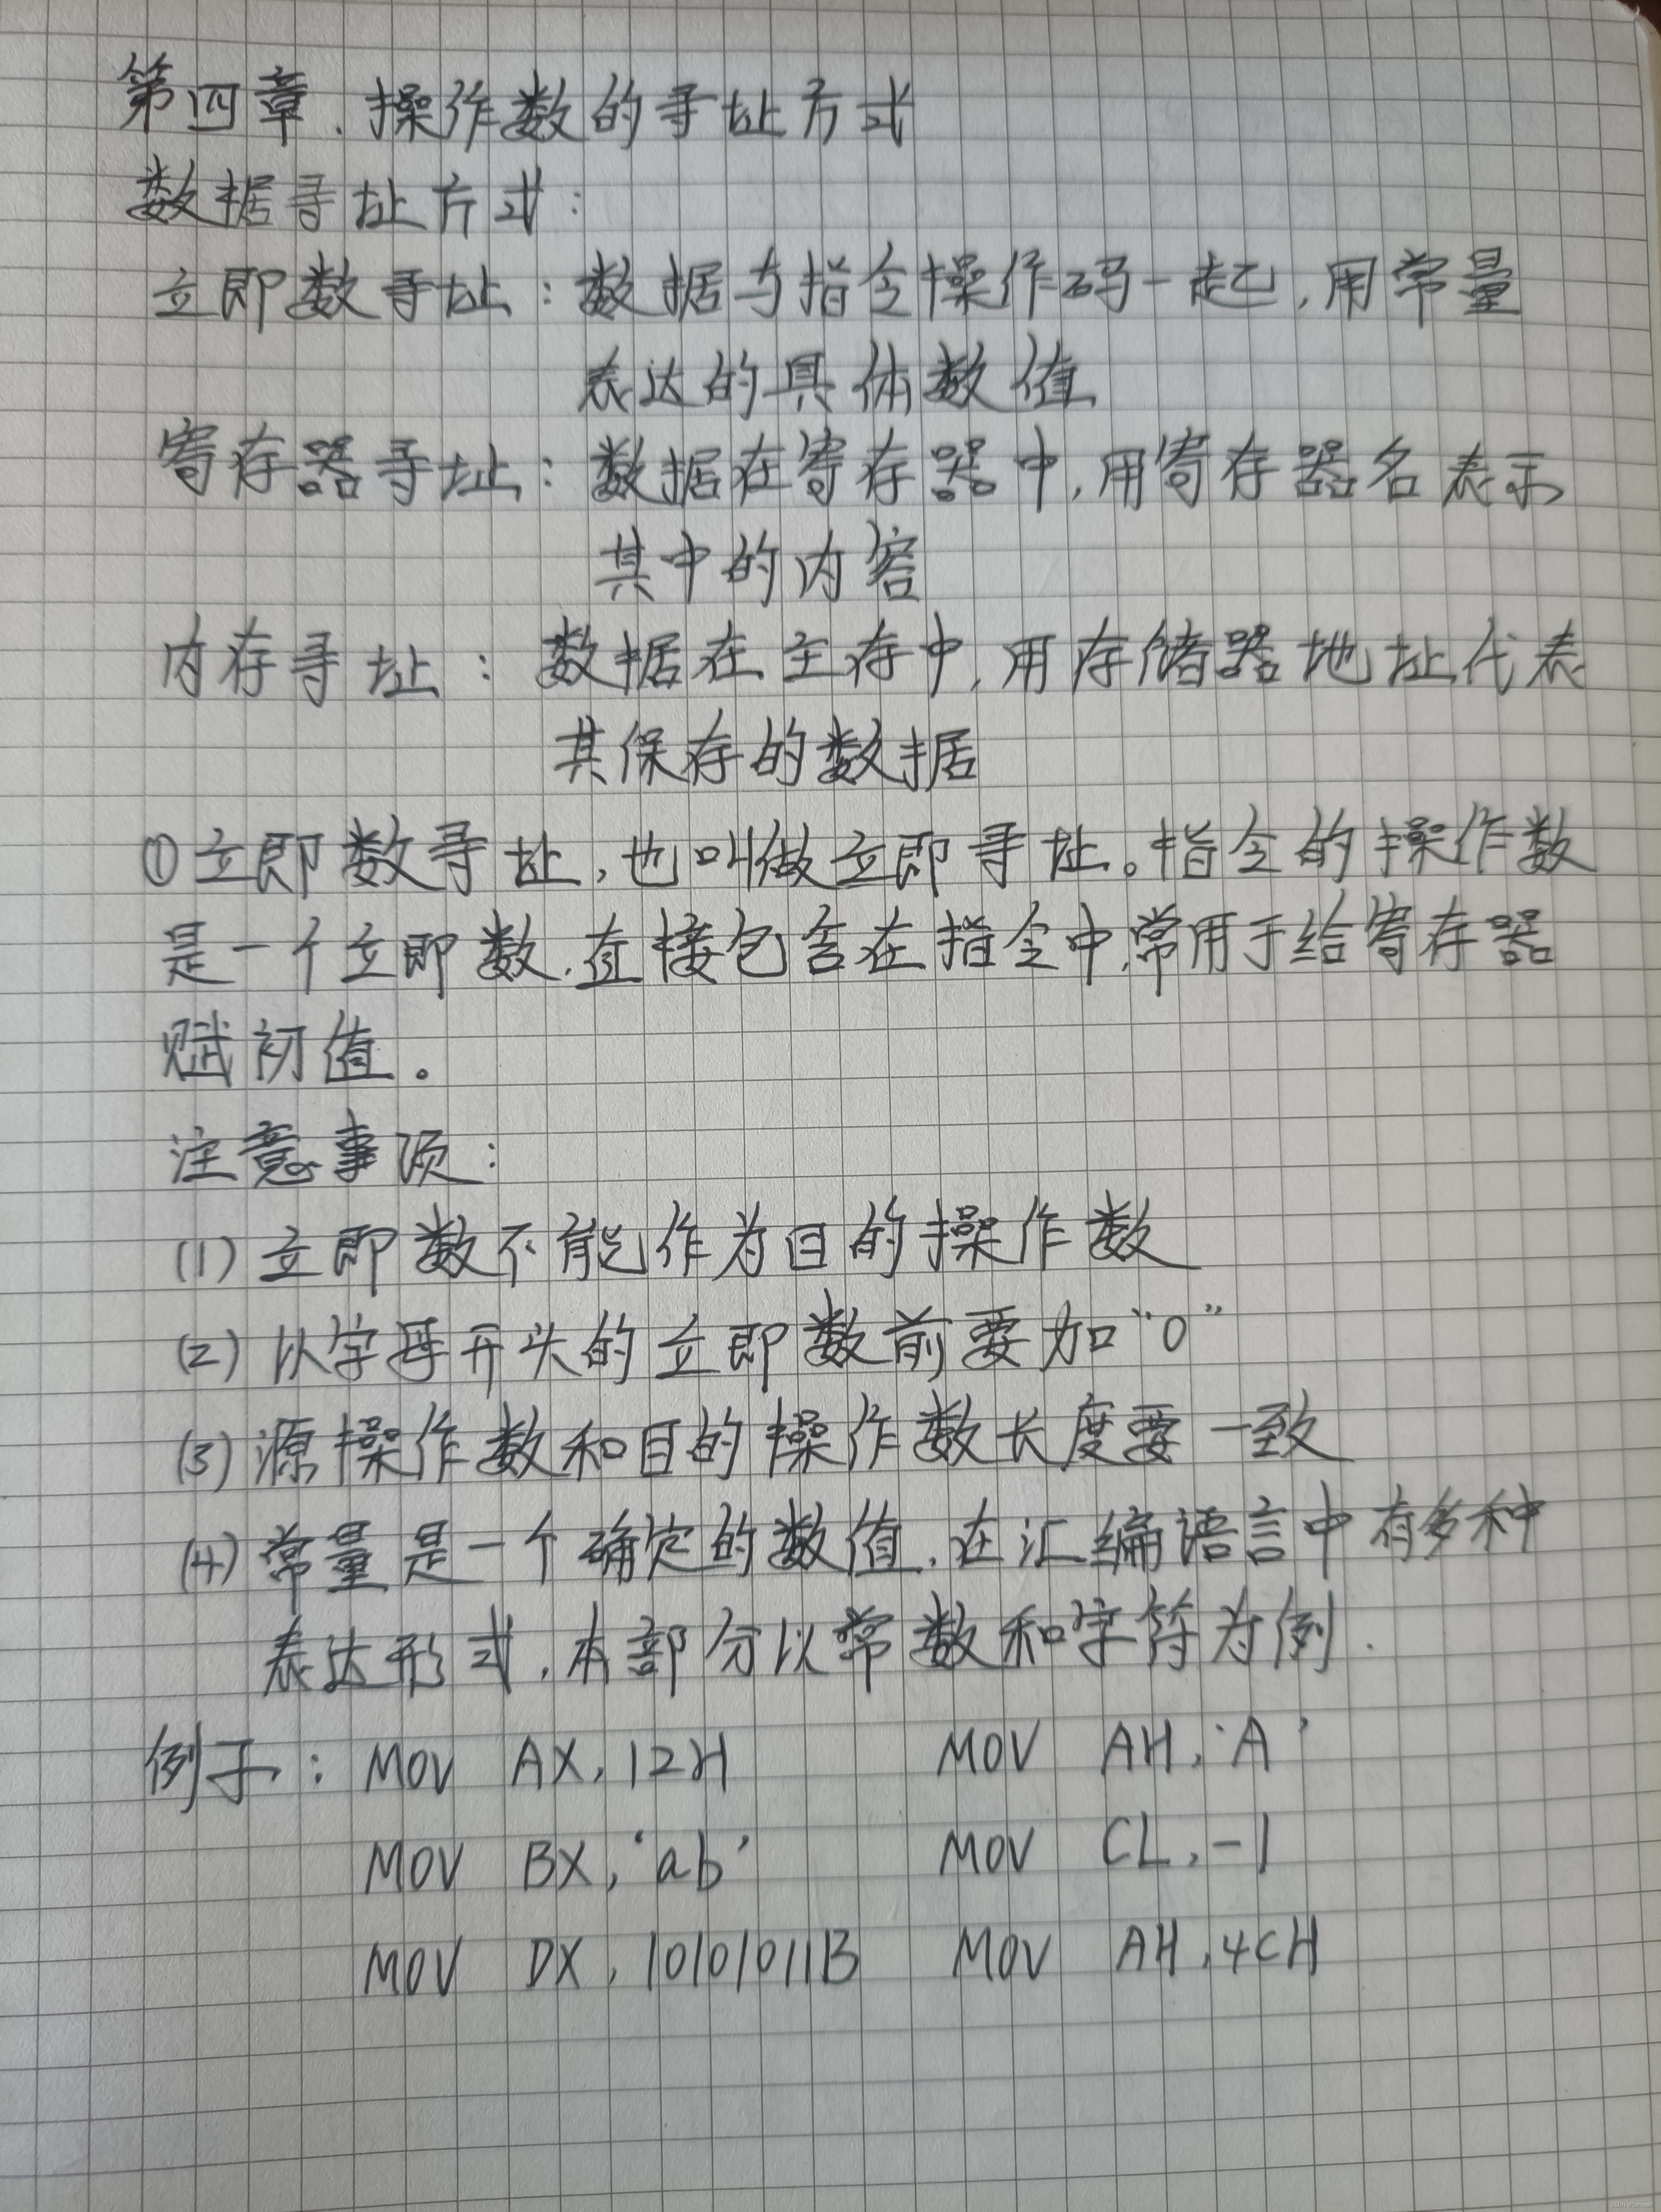 第四章.操作数的寻址方式
数据寻址方式:
立即数寻址:数据与指令操作码一起,用常量
表达的具体数值
寄存器寻址:数据在寄存器中,用寄存器名表示
其中的内容
内存寻址:数据在主存中,用存储器地址代表
其保存的数据
①立即数寻址,也叫做立即寻址。指令的操作数
是一个立即数,直接包含在指令中,常用于给寄存器
赋初值。
注意事项:
(1)立即数不能作为目的操作数
(2)以字母开头的立即数前要加“0”
(3)源操作数和目的操作数长度要一致
(4)常量是一个确定的数值,在汇编语言中有多种
表达形式,本部分以常数和字符为例.
例子: MOV AX,12H MOV AH,'A'
MOV BX,'ab' MOV CL,-1
MOV DX,10101011B MOV AH,4CH